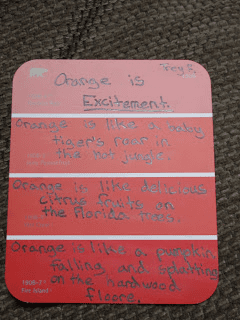 Orange is
Excitement
Orange is like a baby
tiger's roar in
the hot jungle.
Orange is like delicious
citrus fruits on
the Florida trees.
Orange is like a pumpkin
falling and splatting
on the hardwood
floors.